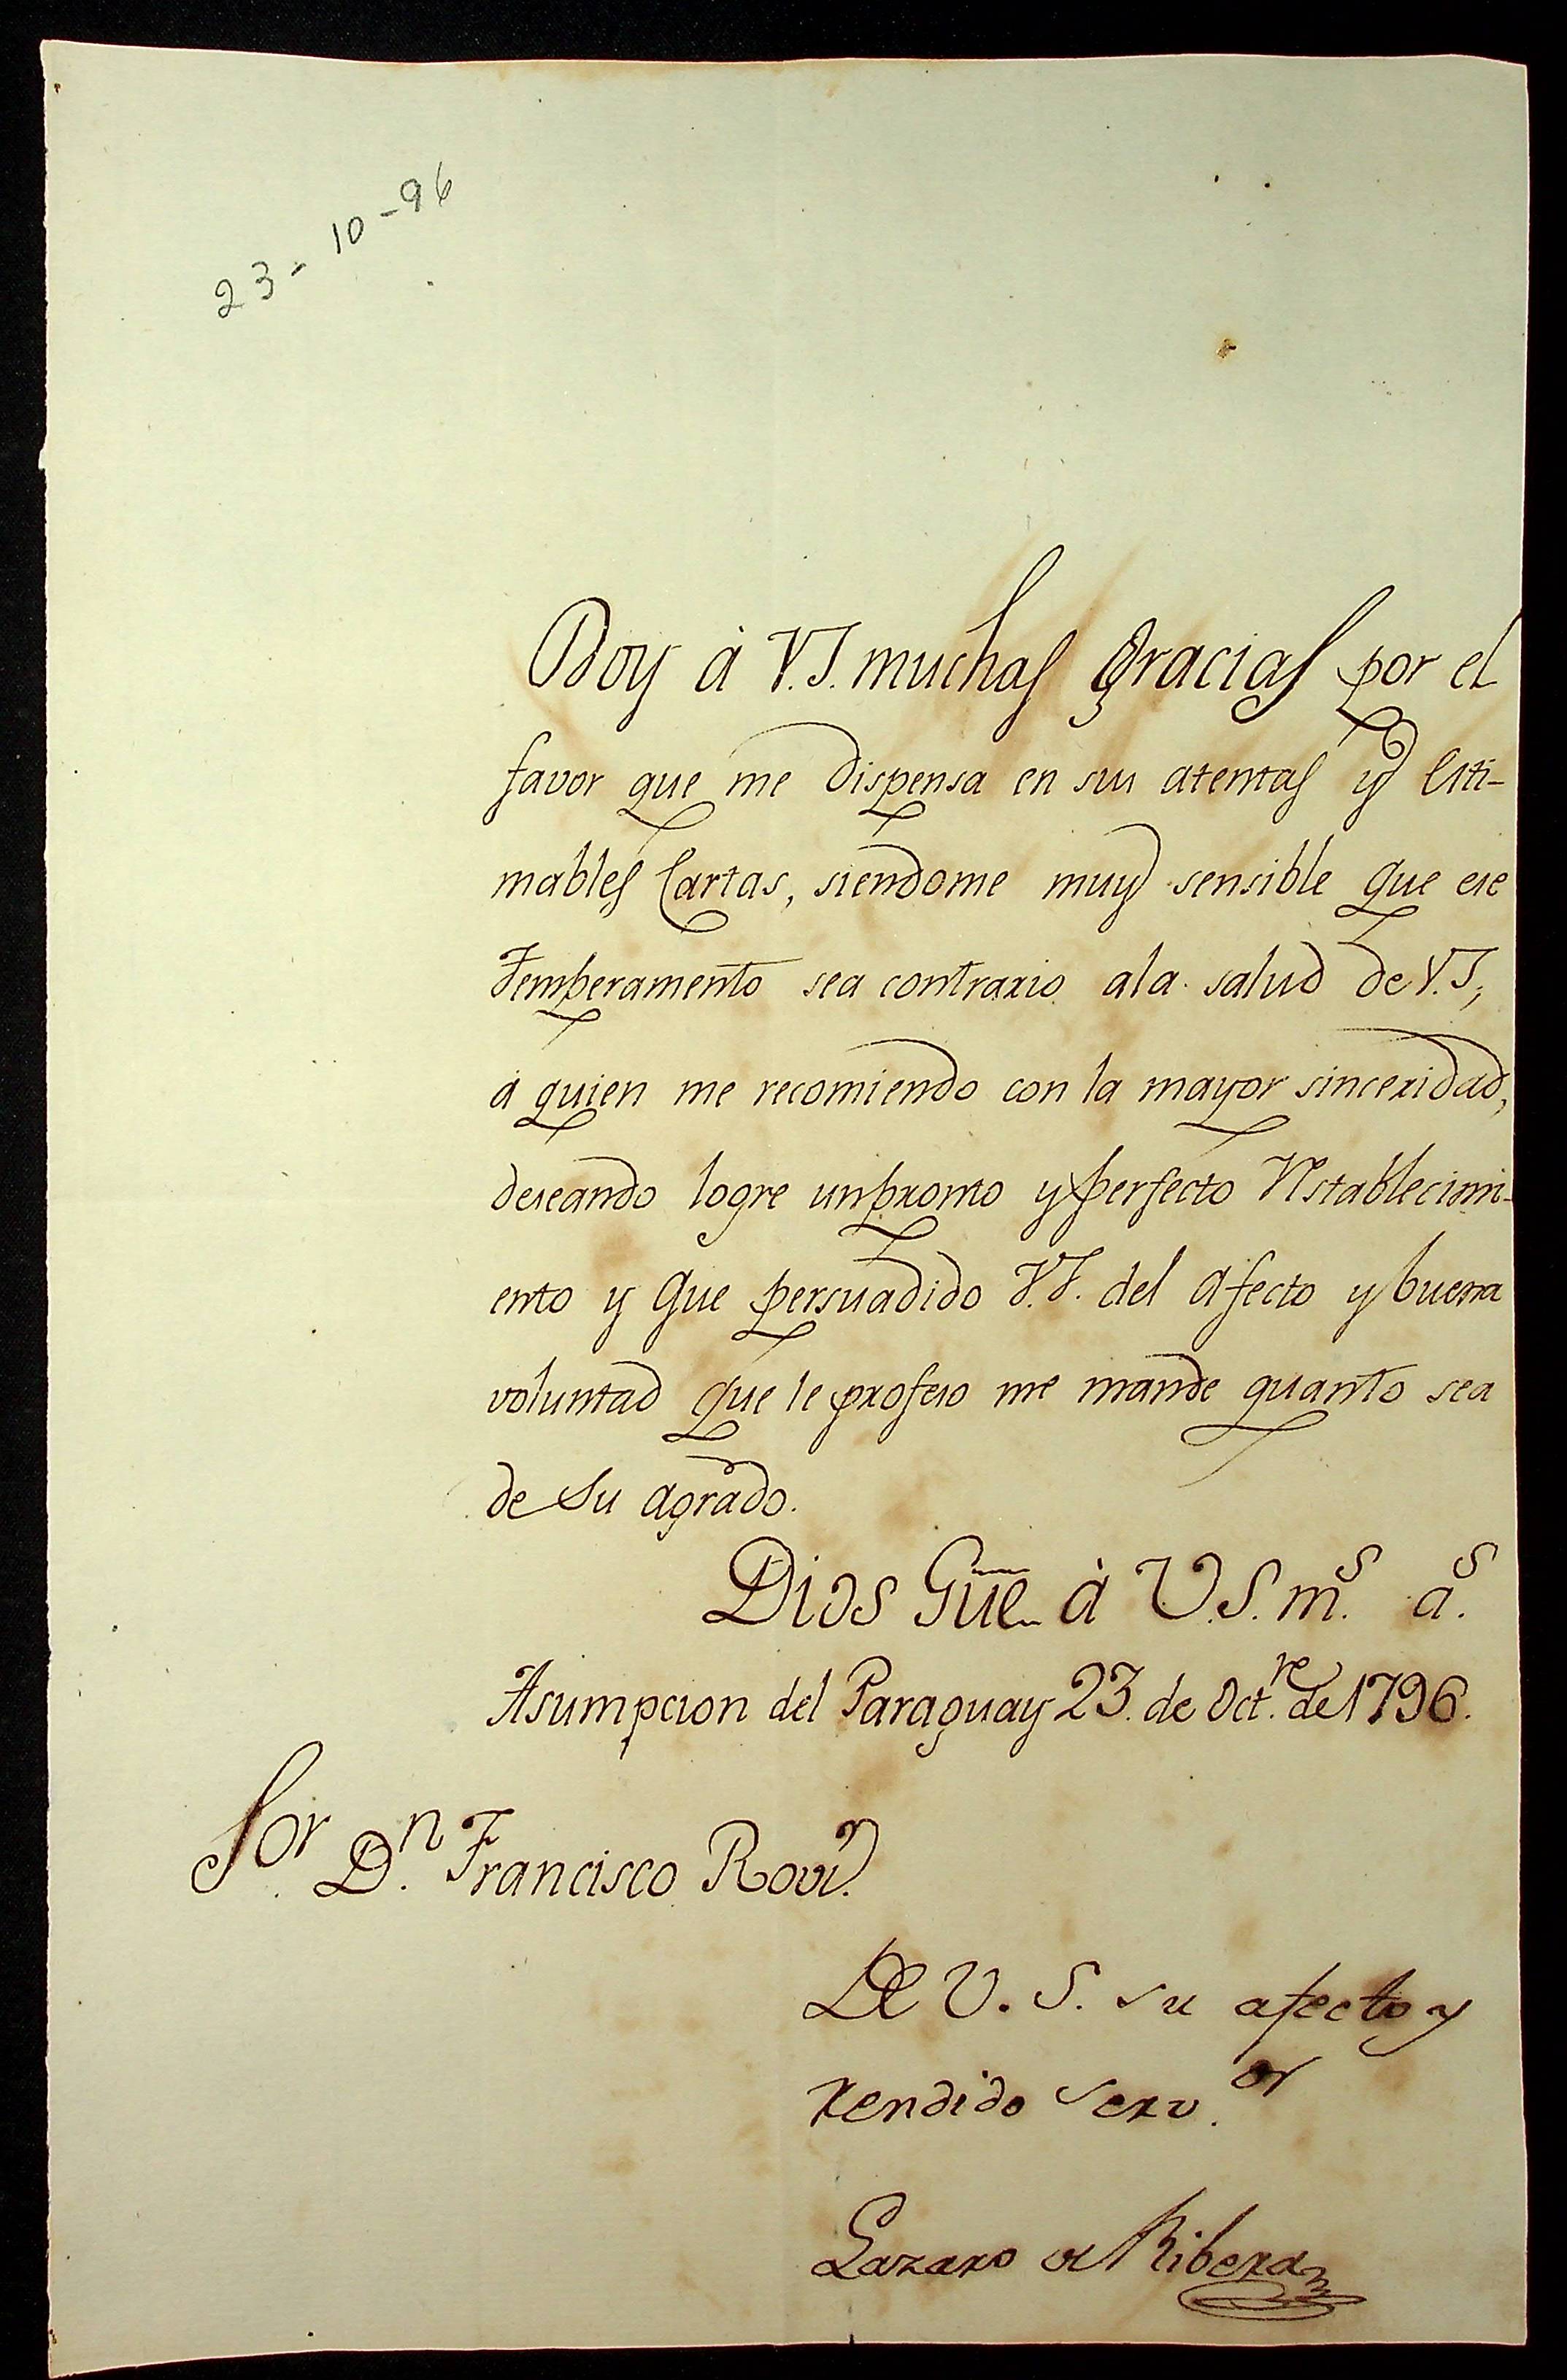 23-10-96
Doy à V.S. muchas gracias por el
favor que me dispensa en sus atentas y esti-
mables Cartas, siendome muy sensible que ese
Temperamento sea contrario ala salud de V.S,
à quien me recomiendo con la mayor sinceridad,
deseando logre un pronto y perfecto restablecimi-
ento y que persuadido V.S. del afecto y buena
voluntad que le profeso me mande quanto sea
de su agrado.
Dios Gue à V.S. ms. as.
Asumpcion del Paraguay 23. de Octre. de 1796.
Sor. Dn. Francisco
De V.S. su afecto y
rendido servor.
Lazaro de Ribera